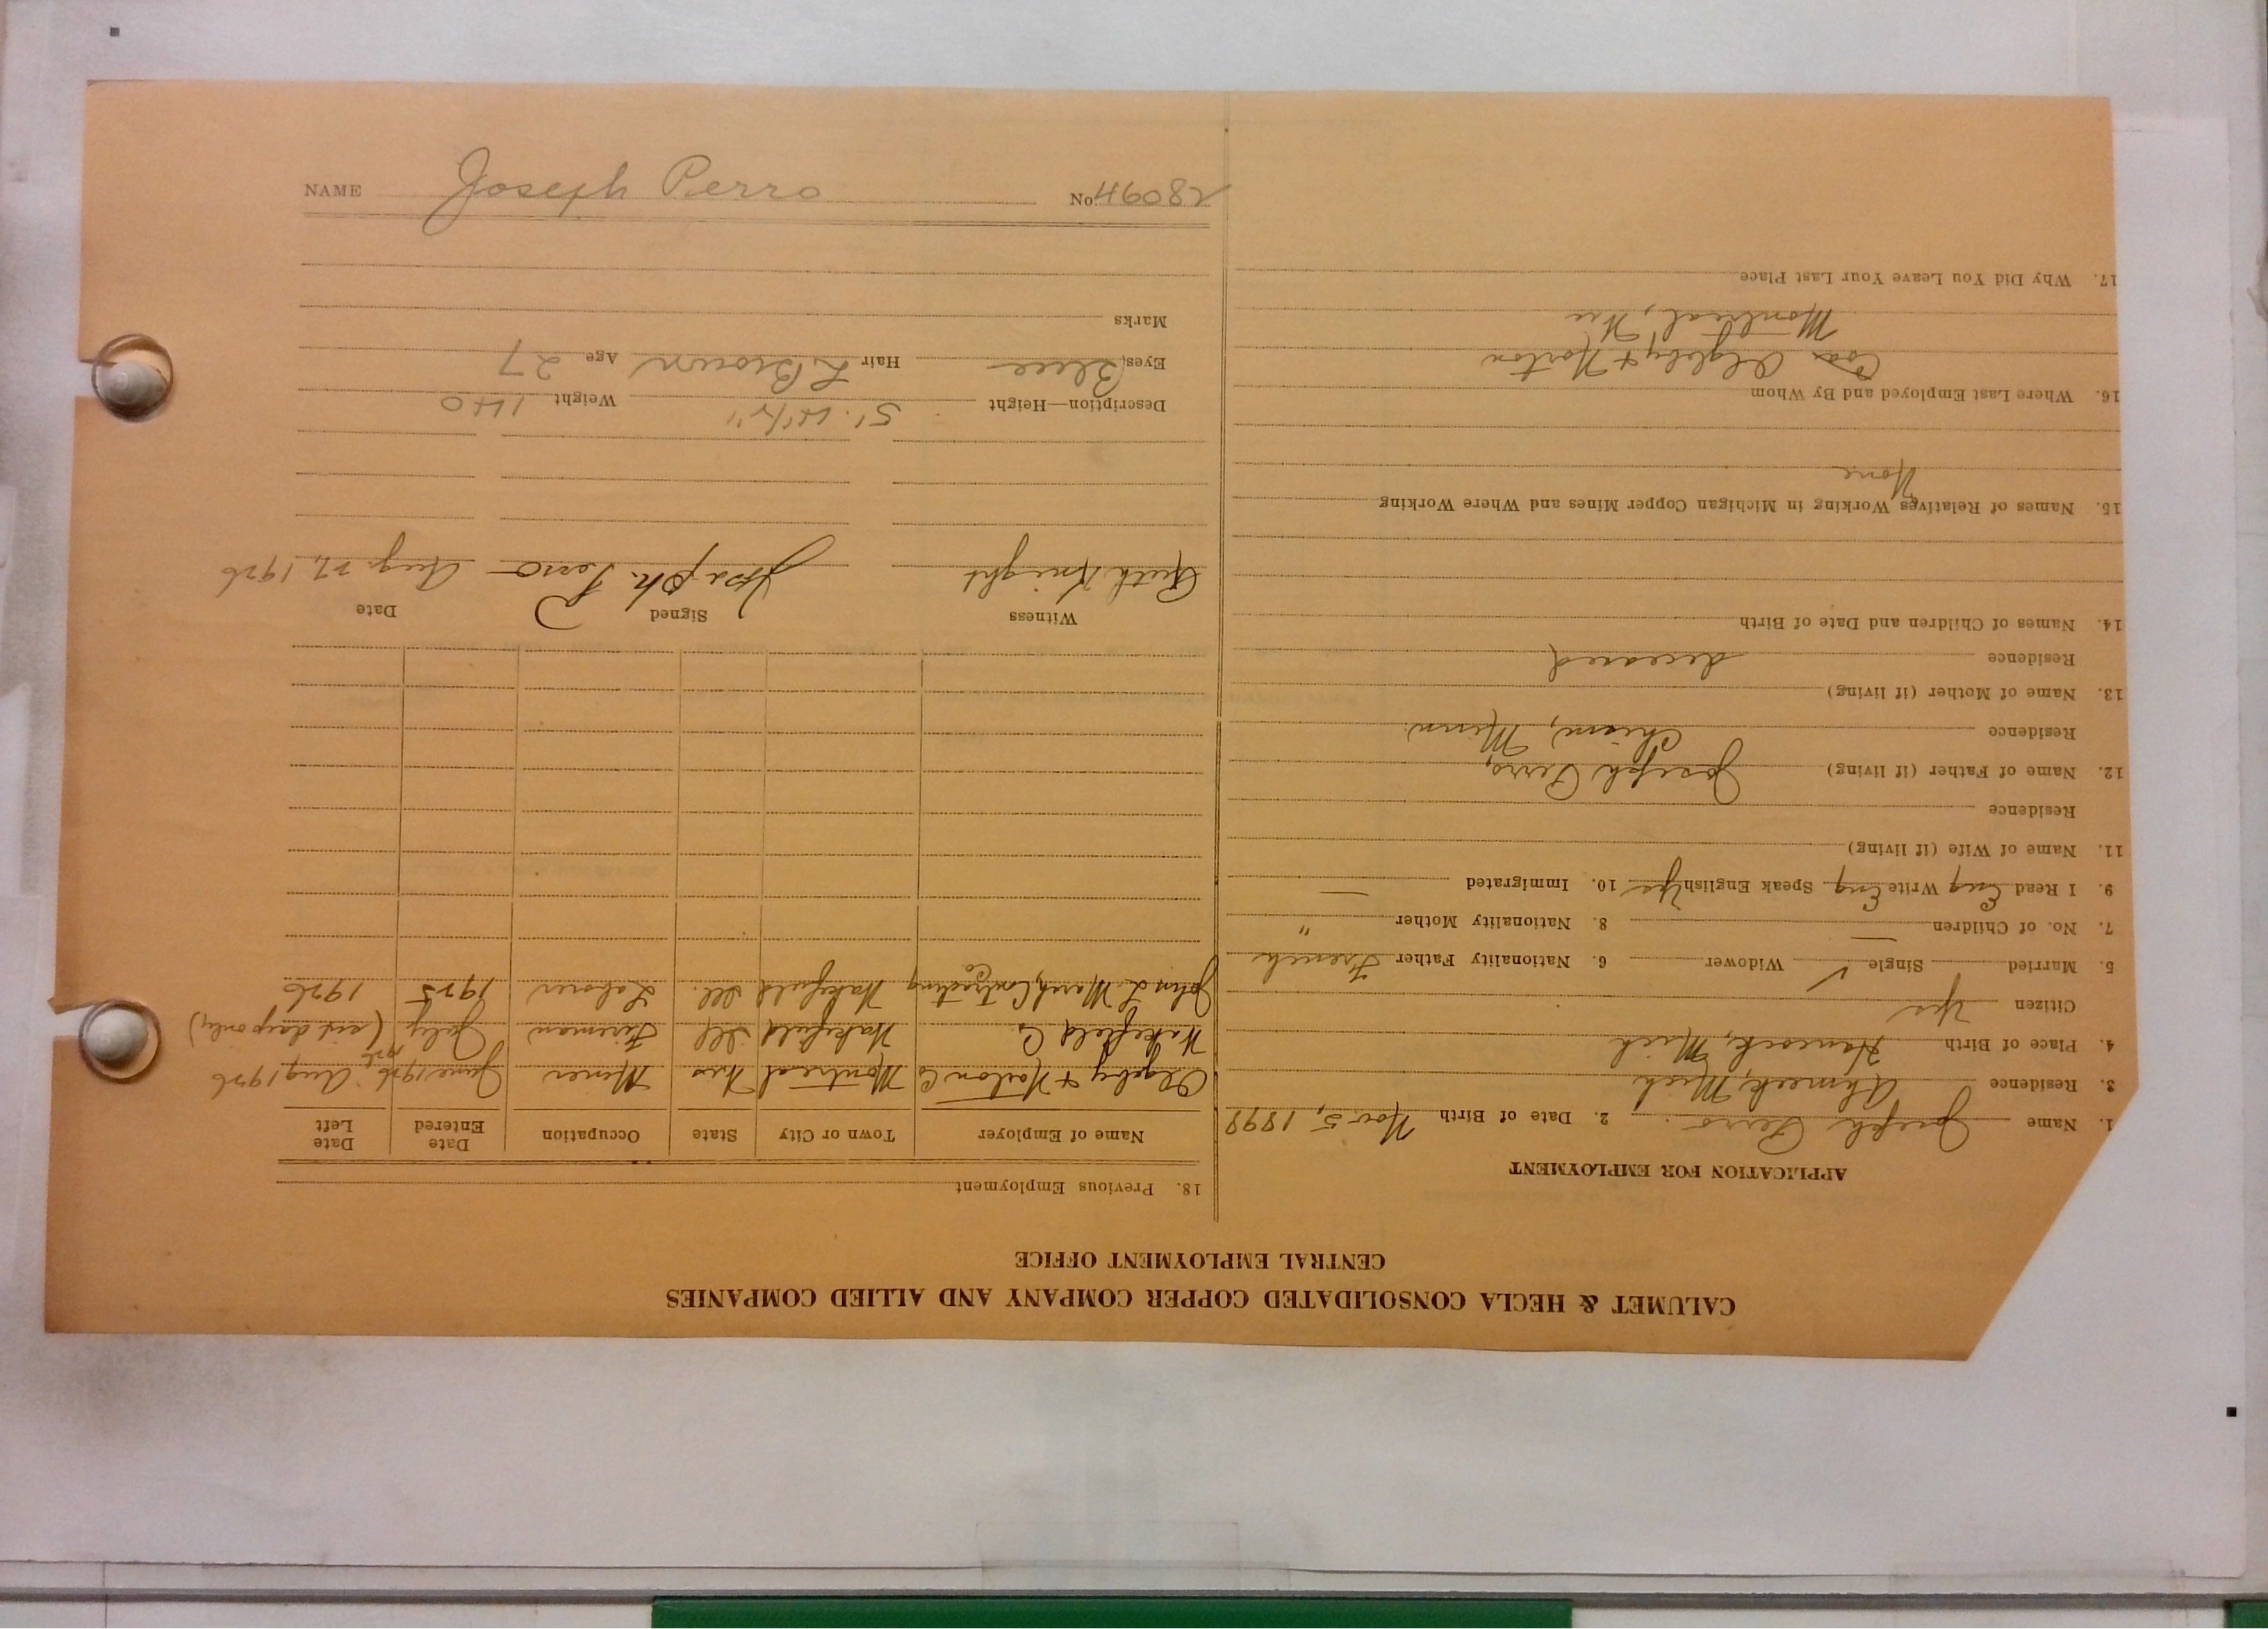 CALUMET & HECLA CONSOLIDATED COPPER COMPANY AND ALLIED COMPANIES
CENTRAL EMPLOYMENT OFFICE
APPLICATION FOR EMPLOYMENT
1. Name Joseph Perro 2. Date of Birth Nov 5, 1898
3. Residence Ahmeek, Mich
4. Place of Birth Hancock, Mich
Citizen Yes
5. Married Single ✓ Widower 6. Nationality Father French
7. No. of Children — 8. Nationality Mother "
9. I Read Eng Write Eng Speak English Yes 10. Immigrated —
11. Name of Wife (if living)
Residence
12. Name of Father (if living) Joseph Perro,
Residence Minn.
13. Name of Mother (if living)
Residence deceased
14. Names of Children and Date of Birth
15. Names of Relatives Working in Michigan Copper Mines and Where Working
None
16. Where Last Employed and By Whom
Ogleby & Norton
Montreal, Wis
17. Why Did You Leave Your Last Place
18. Previous Employment
Name of Employer Town or City State Occupation Date Entered Date Left
Ogleby & Norton Co Montreal Wis Miner June 1926 Aug 1926
Wakefield Co Wakefield Ill Fireman July 1926 (six days only)
John L. Marsch Contracting Co Wakefield Ill. Laborer 1925 1926
Witness Signed Date
Ruth Knight Joseph. Perro Aug. 27, 1926
Description—Height 5' 4 1/2" Weight 140
Eyes Blue Hair L Brown Age 27
Marks
NAME Joseph Perro No. 46082